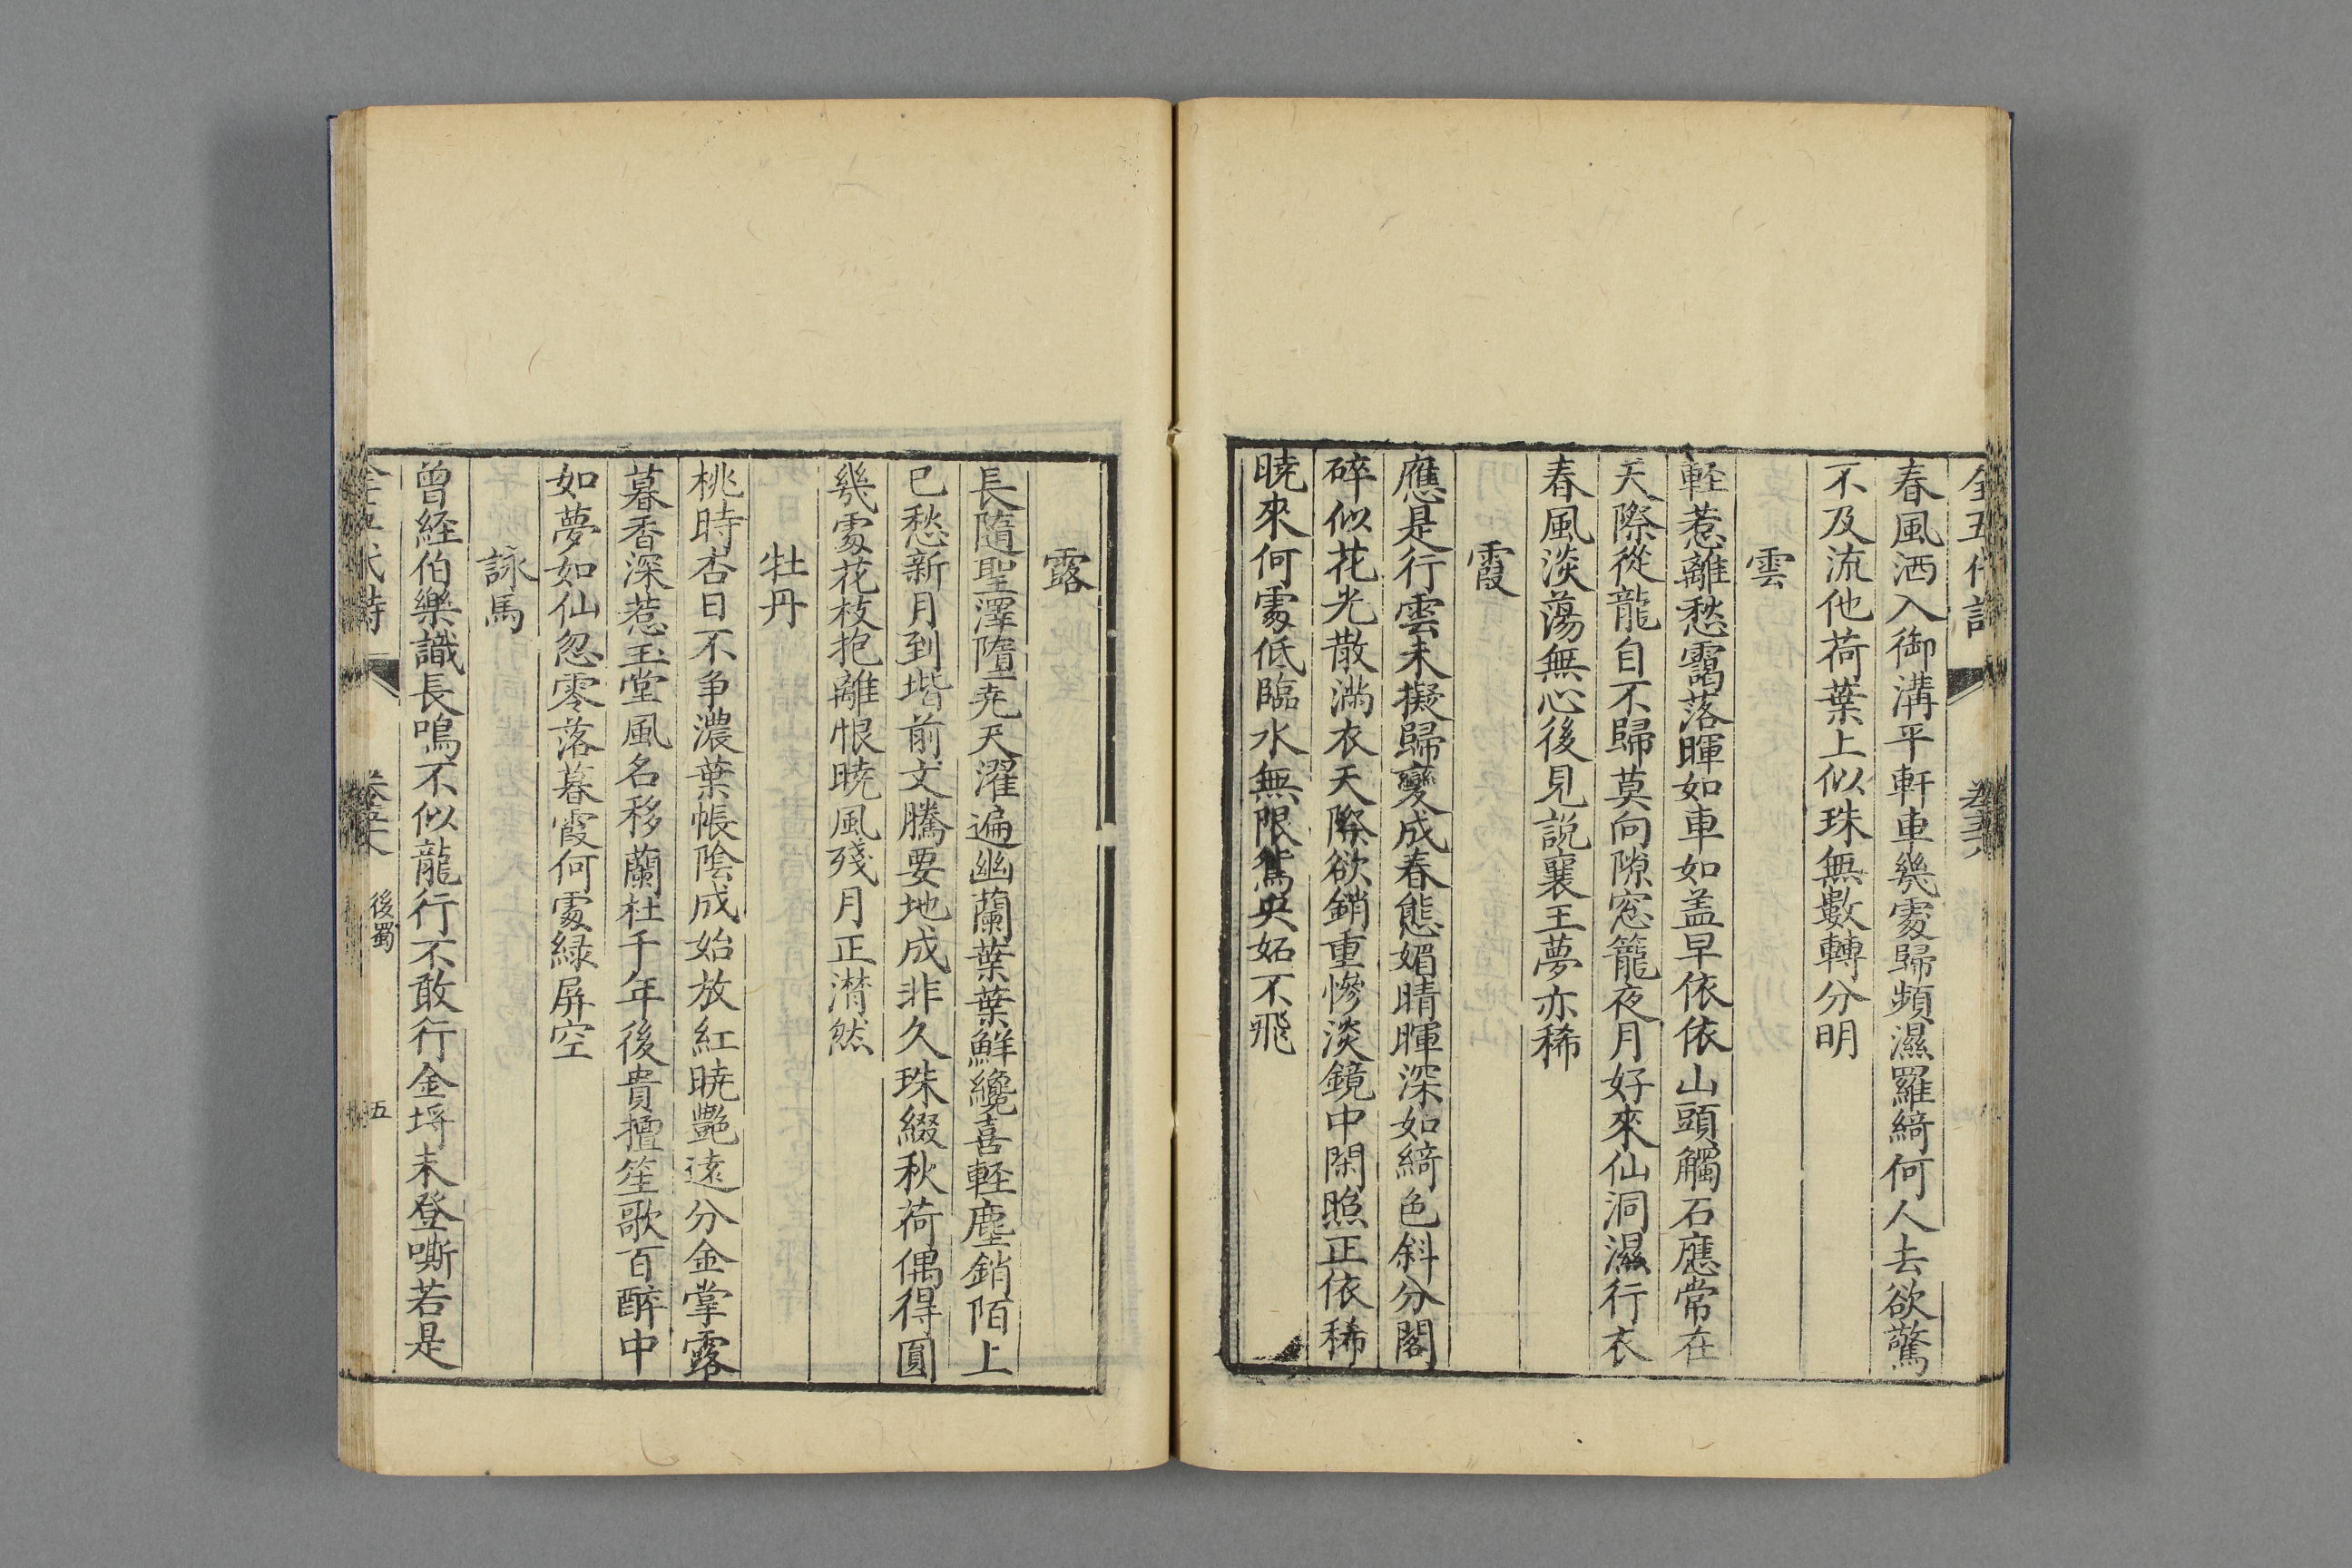 全五代詩
春風洒入御溝平軒車幾處歸頻濕羅綺何人去欲驚
不及流他荷葉上似珠無數轉分明
雲
軽惹離愁靄落暉如車如盖早依依山頭觸石應常在
天際從龍自不歸莫向隙窓籠夜月好來仙洞濕行衣
春風淡蕩無心後見說襄王夢亦稀
霞
應是行雲未擬歸變成春態媚晴暉深如綺色斜分閣
碎似花光散滿衣天際欲銷重慘淡鏡中閑照正依稀
暁來何處低臨水無限鴛央妬不飛
露
長隨聖澤墮尭天濯遍幽蘭葉葉鮮纔喜軽塵銷陌上
已愁新月到堦前文騰要地成非久珠綴秋荷偶得圓
幾處花枝抱離恨曉風殘月正潸然
牡丹
桃時杏日不争濃葉帳陰成始放紅暁艷遠分金掌露
暮香深惹玉堂風名移蘭杜千年後貴擅笙歌百醉中
如夢如仙忽零落暮霞何處緑屏空
詠馬
曽経伯樂識長鳴不似龍行不敢行金埒未登嘶若是
後蜀
五